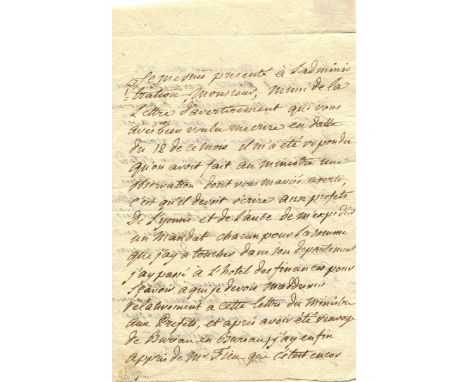 Je me suis presenté à Ladminis
tration, Monsieur, muni de la
Lettre d'avertissement que vous
avés bien voulu m'ecrire en datte
du 12 de ce mois il m'a été repondu
qu'on avoit fait au ministre une
observation dont vous m'aviés averti,
c'est qu'il devoit ecrire aux prefets
De L'yonne et de L'aube de m'expedier
un Mandat chacun pour la somme
que j'ay a toucher dans son departement
j'ay passé à L'hotel des finances pour
sçavoir a qui je devois m'addresser
relativement a cette lettre du Ministre
aux Prefets, et après avoir été renvoyé
de Bureau en Bureau, j'ay enfin
appris de Mr. que c'etoit encor